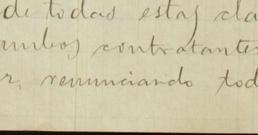 de todas estas cla
ambos contratantes
r, renunciando tod